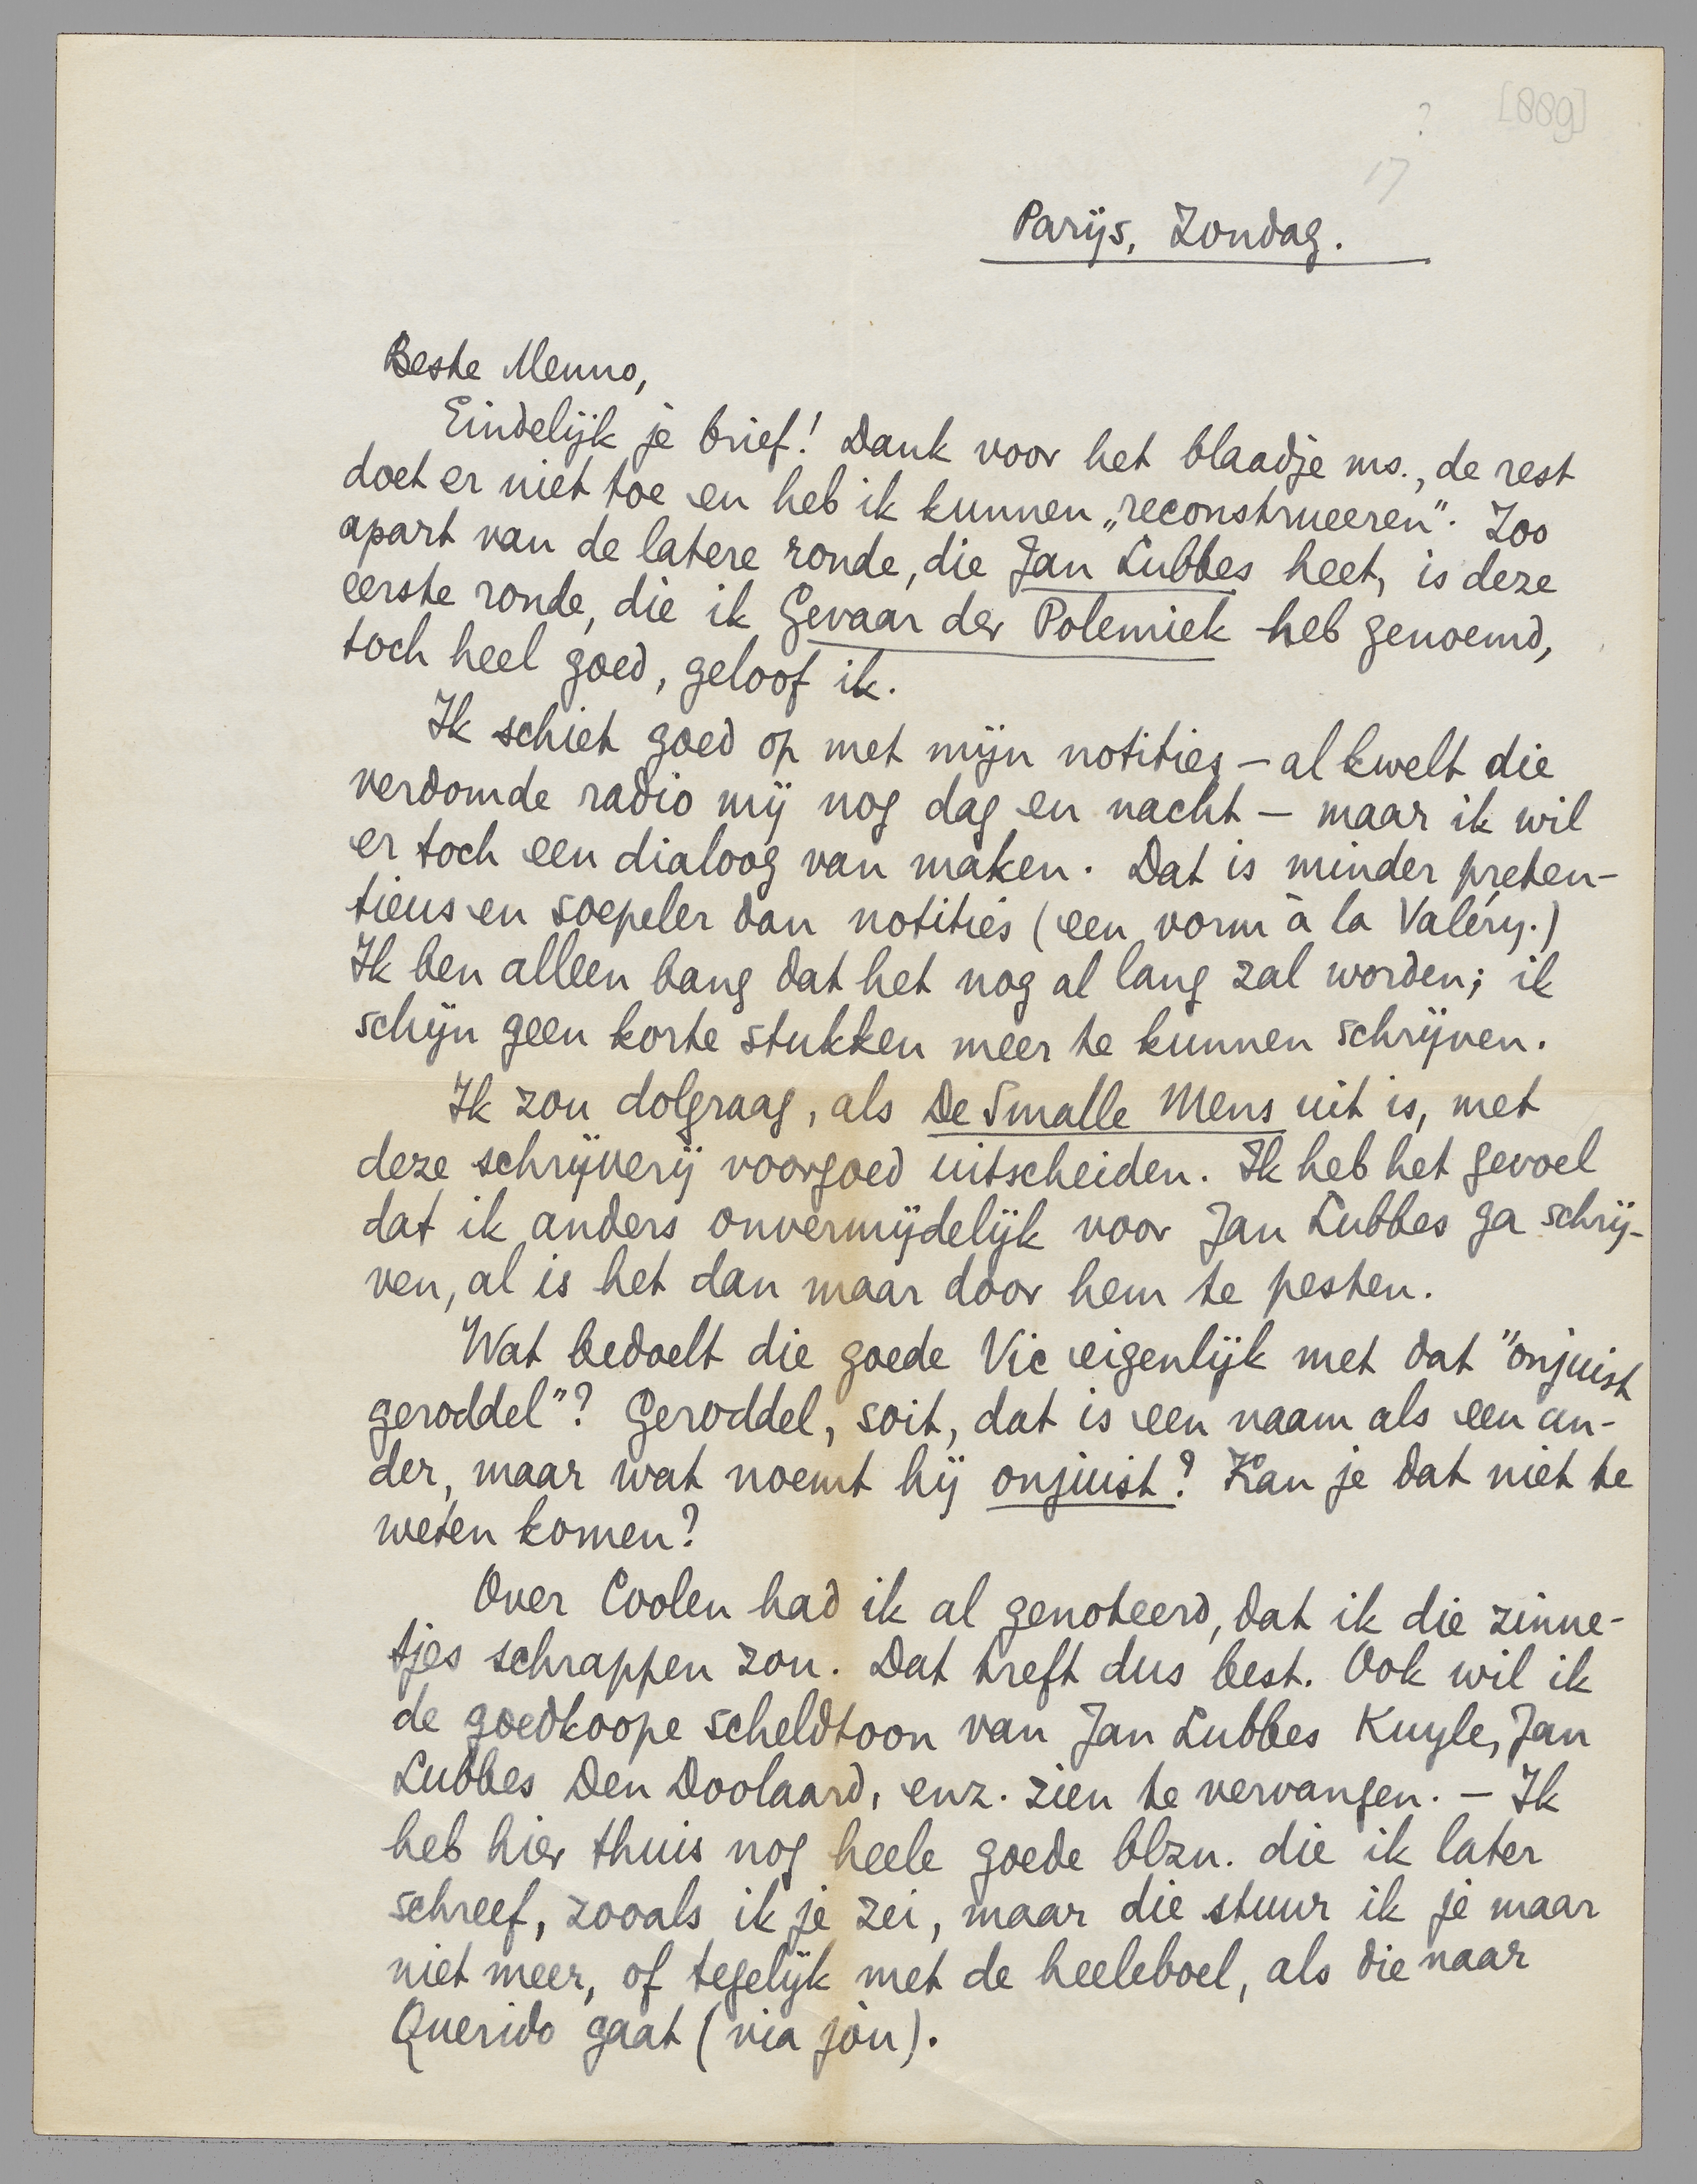 [889]
?
17
Parijs, Zondag.
Beste Menno,
Eindelijk je brief! Dank voor het blaadje ms., de rest
doet er niet toe en heb ik kunnen „reconstrueeren". Zoo
apart van de latere ronde, die Jan Lubbes heet, is deze
eerste ronde, die ik Gevaar der Polemiek heb genoemd,
toch heel goed, geloof ik.
Ik schiet goed op met mijn notities – al kwelt die
verdomde radio mij nog dag en nacht – maar ik wil
er toch een dialoog van maken. Dat is minder preten-
tieus en soepeler dan notities (een vorm à la Valéry.)
Ik ben alleen bang dat het nog al lang zal worden; ik
schijn geen korte stukken meer te kunnen schrijven.
Ik zou dolgraag, als De Smalle Mens uit is, met
deze schrijverij voorgoed uitscheiden. Ik heb het gevoel
dat ik anders onvermijdelijk voor Jan Lubbes ga schrij-
ven, al is het dan maar door hem te pesten.
Wat bedoelt die goede Vic eigenlijk met dat "onjuist
geroddel"? Geroddel, soit, dat is een naam als een an-
der, maar wat noemt hij onjuist? Kan je dat niet te
weten komen?
Over Coolen had ik al genoteerd, dat ik die zinne-
tjes schrappen zou. Dat treft dus best. Ook wil ik
de goedkoope scheldtoon van Jan Lubbes Kuyle, Jan
Lubbes Den Doolaard, enz. zien te vervangen. – Ik
heb hier thuis nog heele goede blzn. die ik later
schreef, zooals ik je zei, maar die stuur ik je maar
niet meer, of tegelijk met de heeleboel, als die naar
Querido gaat (via jòu).